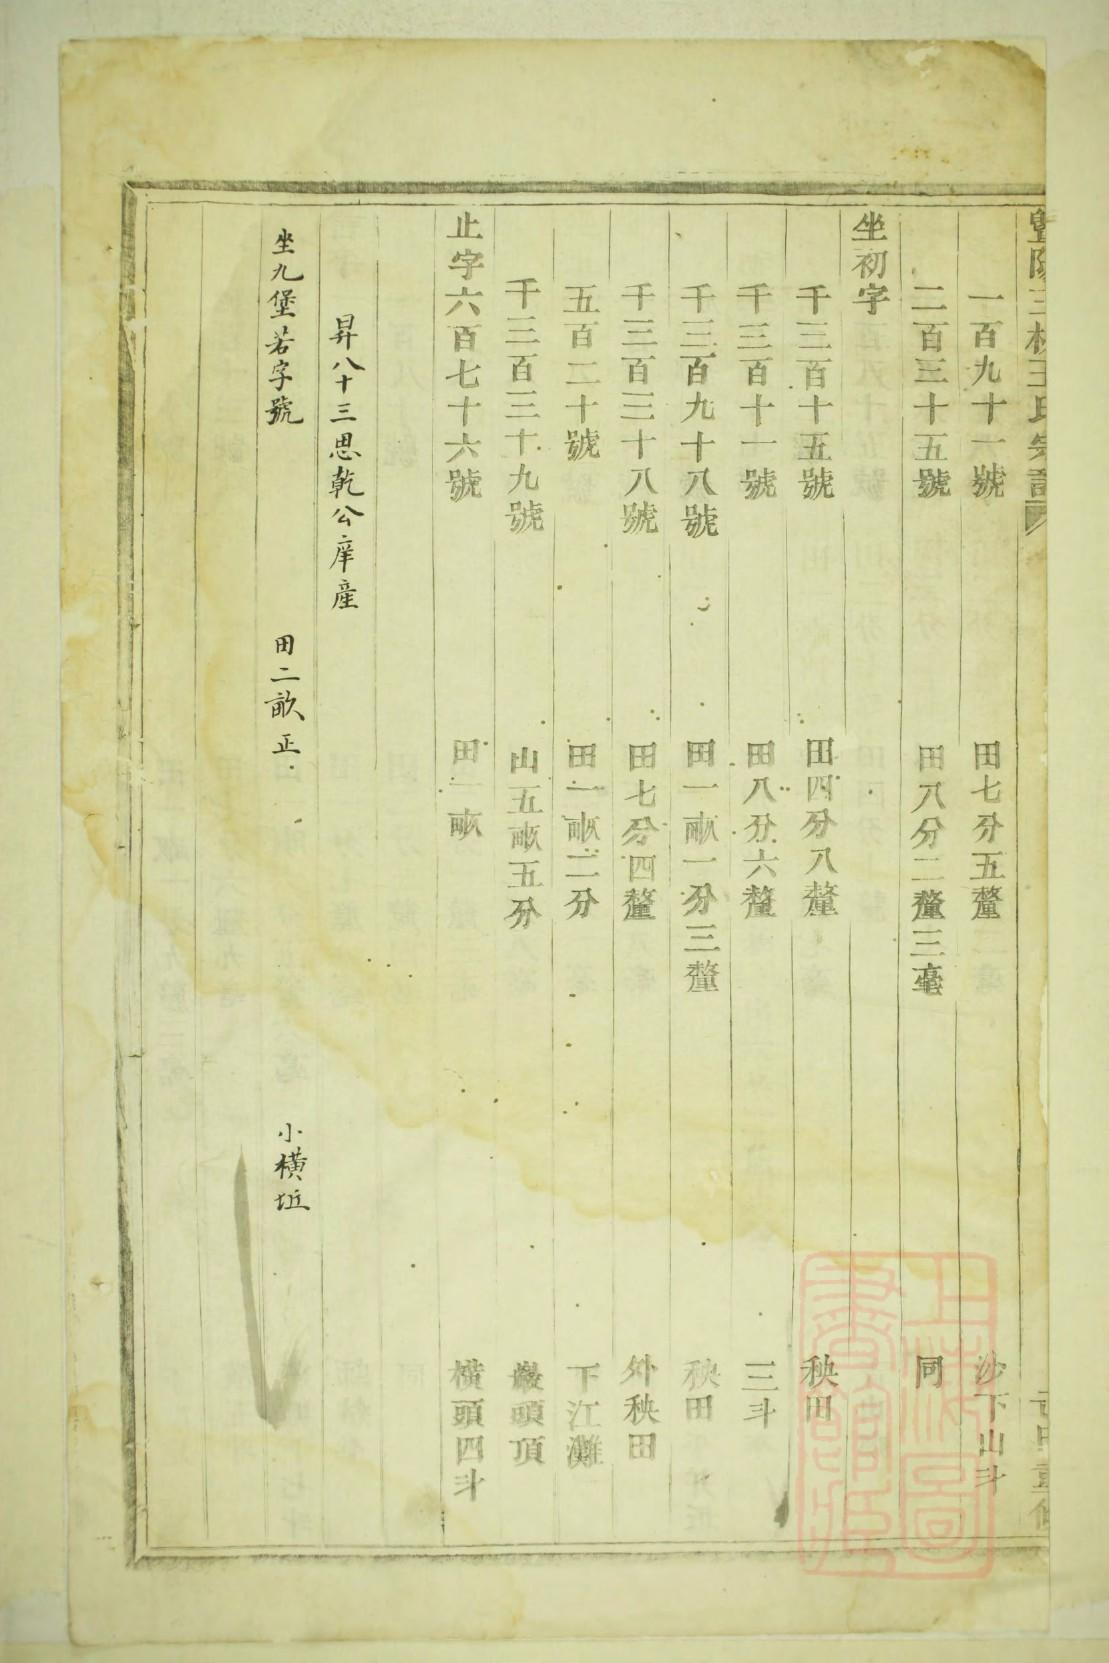 一百九十六號 田七分五釐 沙下山斗
二百三十五號 田八分二釐三毫 同
坐初字
千三百十五號 田四分八釐 秧田
千三百十一號 田八分六釐 三斗
千三百九十八號 田一畝一分三釐 秧田
千三百三十八號 田七分四釐 外秧田
五百二十號 田一畝二分 下江灘
千三百三十九號 山五畝五分 巖頭頂
止字六百七十六號 田一畝 橫頭四斗
昇八十三思乾公庠產
坐九堡若字號 田二畝正 小橫坵